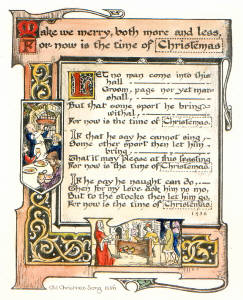 Make we merry, both more and less,
For now is the time of Christemas
Let no man come into this
hall
Groom, page nor yet mar-
shall,
But that some sport he bring
withal,
For now is the time of Christemas.
If that he say he cannot sing
Some other sport then let him
bring
That it may please at this feasting
For now is the time of Christemas.
If he say he naught can do,
Then for my love ask him no mo,
But to the stocks then let him go,
For now is the time of Christemas
Old Christmas Song 1536